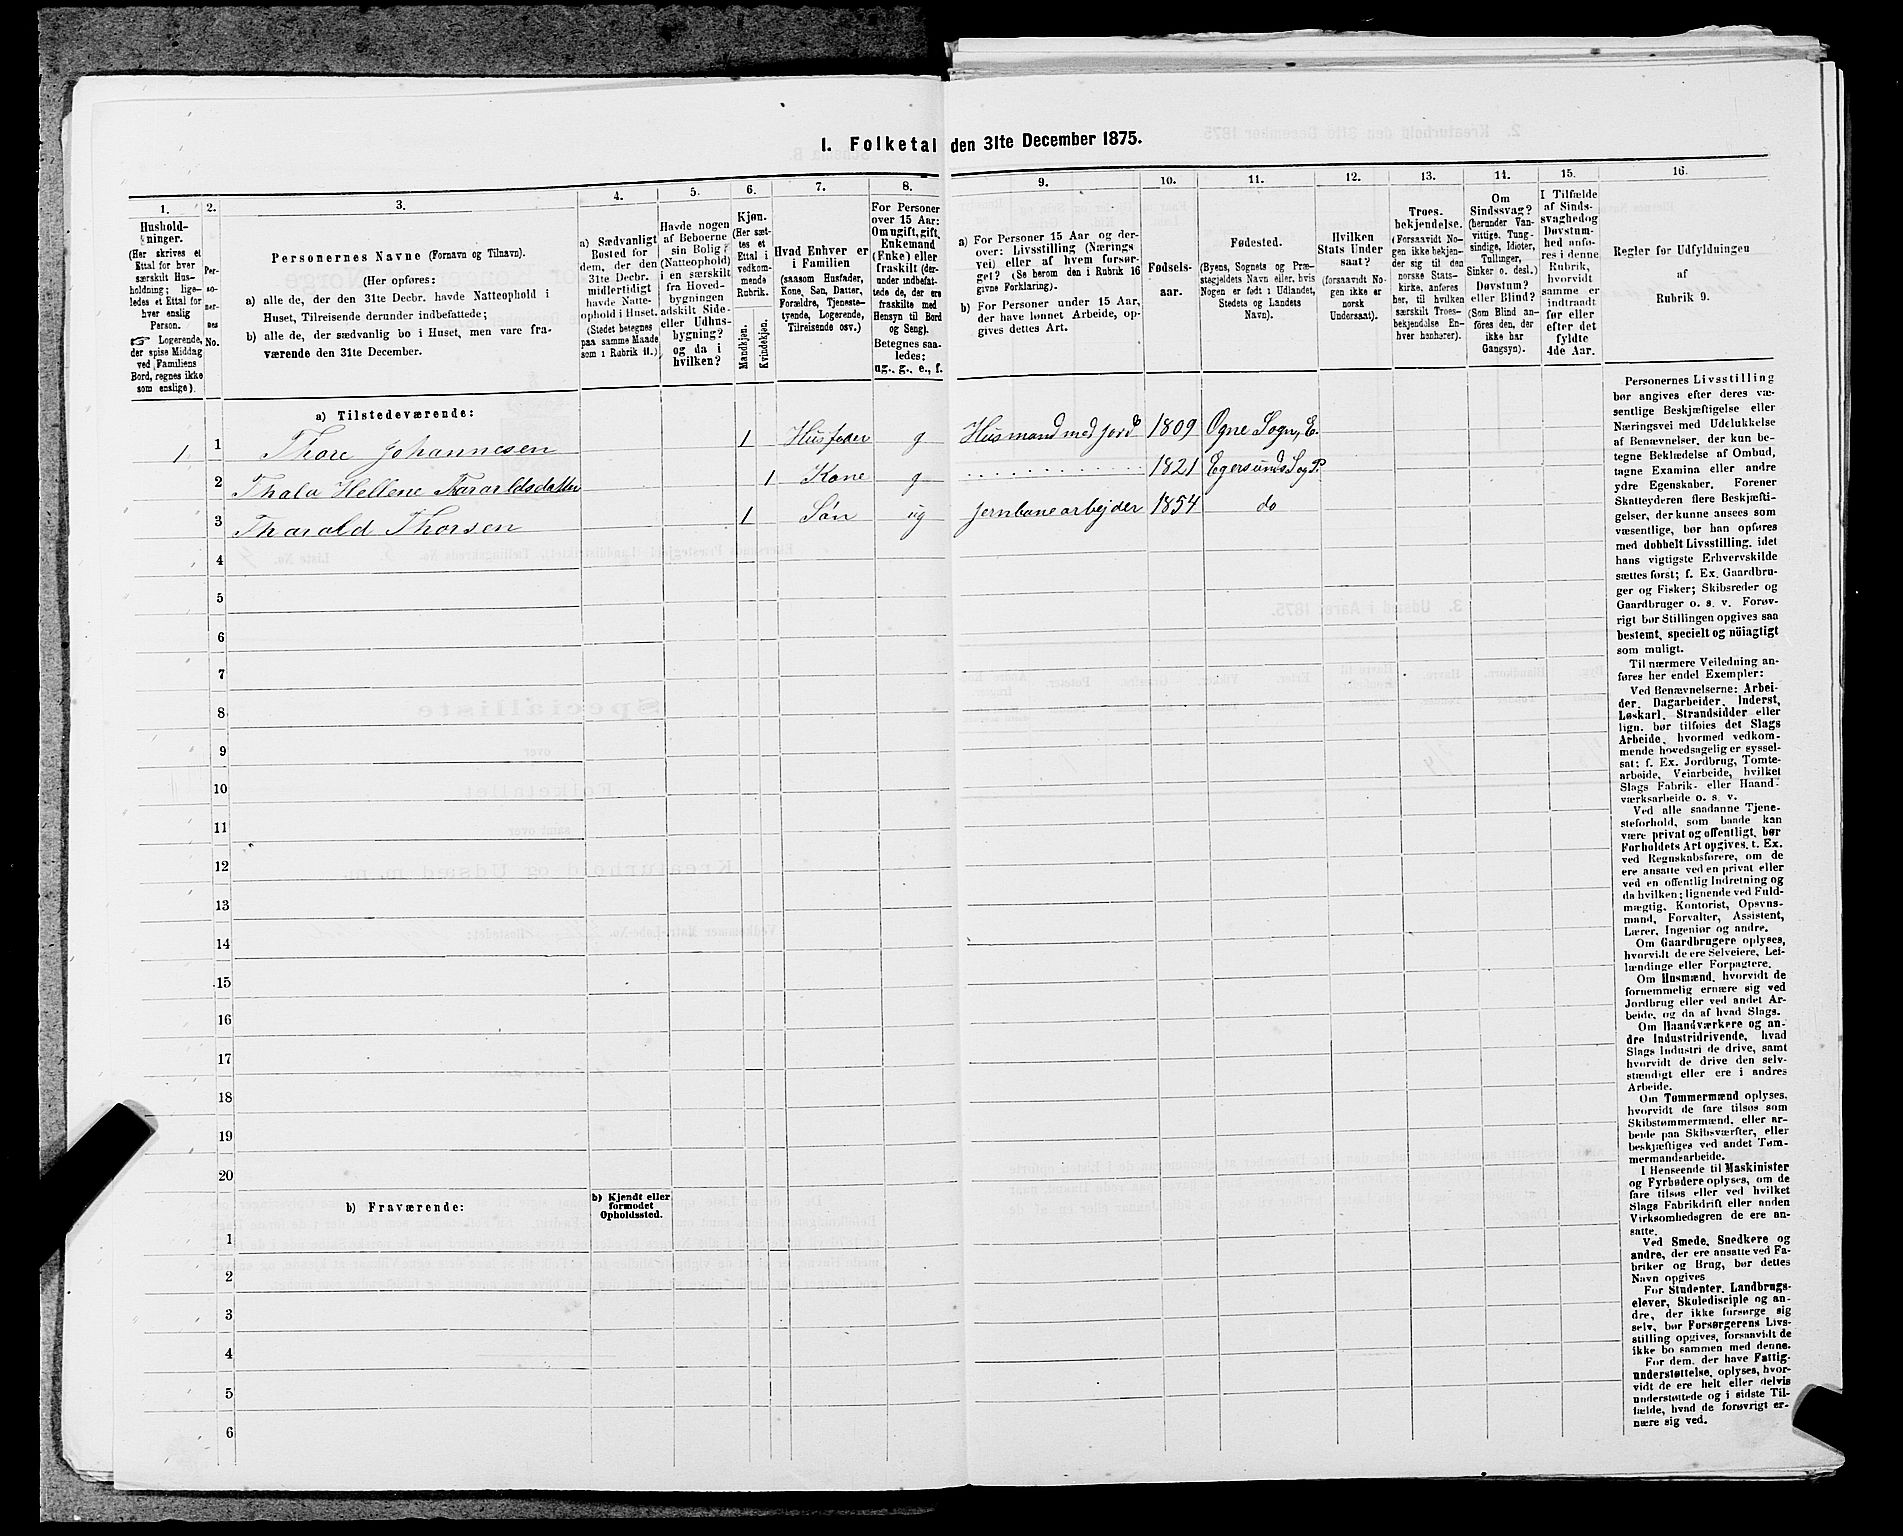 I. Folketal den 31te December 1875.
1.
Hushold-
ninger.
(Her skrives et
Ettal for hver
særskilt Hus-
holdning; lige-
ledes et Ettal for
hver enslig
Person.
☞ Logerende,
der spise Middag
ved Familiens
Bord, regnes ikke
som enslige).
2.
Per-
so-
ner-
nes
No.
3.
Personernes Navne (Fornavn og Tilnavn).
(Her opføres:
a) alle de, der den 31te Decbr. havde Natteophold i
Huset, Tilreisende derunder indbefattede;
b) alle de, der sædvanlig bo i Huset, men vare fra-
værende den 31te December.
4.
a) Sædvanligt
Bosted for
dem, der den
31te Decbr.
midlertidigt
havde Natte-
ophold i Huset.
(Stedet betegnes
paa samme Maade
som i Rubrik 11.)
5.
Havde nogen
af Beboerne
sin Bolig
(Natteophold)
i en særskilt
fra Hoved-
bygningen
adskilt Side-
eller Udhus-
bygning?
og da i
hvilken?
6.
Kjøn.
(Her sæt-
tes et
Ettal i
vedkom-
mende
Rubrik.
Mandkjøn.
Kvindekjøn.
7.
Hvad Enhver er
i Familien
(saasom Husfader,
Kone, Søn, Datter,
Forældre, Tjeneste-
tyende, Logerende,
Tilreisende osv.)
8.
For Personer
over 15 Aar:
Om ugift, gift,
Enkemand
(Enke) eller
fraskilt (der-
under indbefat-
tede de, der ere
fraskilte med
Hensyn til Bord
og Seng).
Betegnes saa-
ledes:
ug., g., e., f.
9.
a) For Personer 15 Aar og der-
over: Livsstilling (Nærings
vei) eller af hvem forsør-
get? (Se herom den i Rubrik 16
givne Forklaring).
b) For Personer under 15 Aar,
der have lønnet Arbeide, op-
gives dettes Art.
10.
Fødsels-
aar.
11.
Fødested.
(Byens, Sognets og Præ-
stegjeldets Navn eller, hvis
Nogen er født i Udlandet,
Stedets og Landets
Navn).
12.
Hvilken
Stats Under
saat?
(forsaavidt No-
gen ikke er
norsk
Undersaat).
13.
Troes-
bekjendelse.
(Forsaavidt No-
gen ikke bekjen-
der sig til den
norske Stats-
kirke, anføres
her, til hvilken
særskilt Troes-
bekjendelse En-
hver henhører).
14.
Om
Sindssvag?
(herunder Van-
vittige, Tung-
sindige, Idioter,
Tullinger,
Sinker o. desl.)
Døvstum?
eller Blind?
(Som Blind an-
føres den, der
ikke har
Gangsyn).
15.
I Tilfælde
af Sinds-
svaghedog
Døvstum-
hed anfø-
res i denne
Rubrik,
hvorvidt
samme er
indtraadt
før eller
efter det
fyldte
4de Aar.
16.
Regler før Udfyldningen
af
Rubrik 9.
a) Tilstedeværende:
1 1 Thore Johannesen 1 Husfader g Husmand med jord 1809 Ogne Sogn, E.
2 Thala Hellene Tararldsdatter 1 Kone g . . . . . . 1821 Egersunds Sog P.
3 Tharald Thorsen 1 Søn ug Jernbanearbejder 1854 do
4
5
6
7
8
9
10
11
12
13
14
15
16
17
18
19
20
b) Fraværende:
b) Kjendt eller
formodet
Opholdssted.
1
2
3
4
5
6
Personernes Livsstilling
bør angives efter deres væ-
sentlige Beskjæftigelse eller
Næringsvei med Udelukkelse
af Benævnelser, der kun be-
tegne Beklædelse af Ombud,
tagne Examina eller andre
ydre Egenskaber. Forener
Skatteyderen flere Beskjæfti-
gelser, der kunne ansees som
væsentlige, bør han opføres
med dobbelt Livsstilling, idet
hans vigtigste Erhvervskilde
sættes først; f. Ex. Gaardbru-
ger og Fisker; Skibsreder og
Gaardbruger o. s. v. Forøv-
rigt bør Stillingen opgives saa
bestemt, specielt og nöiagtigt
som muligt.
Til nærmere Veiledning an-
føres her endel Exempler:
Ved Benævnelserne: Arbei-
der, Dagarbeider, Inderst,
Løskarl, Strandsidder eller
lign. bør tilføies det Slags
Arbeide, hvormed vedkom-
mende hovedsagelig er syssel-
sat; f. Ex. Jordbrug, Tomte-
arbeide, Veiarbeide, hvilket
Slags Fabrik- eller Haand-
værksarbeide o. s. v.
Ved alle saadanne Tjene-
steforhold, som baade kan
være privat og offentligt, bør
Forholdets Art opgives, t. Ex.
ved Regnskabsførere, om de
ere ansatte ved en privat eller
ved en offentlig Indretning og
da hvilken; lignende ved Fuld-
mægtig, Kontorist, Opsyns-
mand, Forvalter, Assistent,
Lærer, Ingeniør og andre.
Om Gaardbrugere oplyses,
hvorvidt de ere Selveiere, Lei-
lændinge eller Forpagtere.
Om Husmænd, hvorvidt de
fornemmelig ernære sig ved
Jordbrug eller ved andet Ar-
beide, og da af hvad Slags.
Om Haandværkere og an-
dre Industridrivende, hvad
Slags Industri de drive, samt
hvorvidt de drive den selv-
stændigt eller ere i andres
Arbeide.
Om Tømmermænd oplyses,
hvorvidt de fare tilsøs som
Skibstømmermænd, eller ar-
beide paa Skibsværfter, eller
beskjæftiges ved andet Tøm-
mermandsarbeide.
I Henseende til Maskinister
og Fyrbødere oplyses, om de
fare tilsøs eller ved hvilket
Slags Fabrikdrift eller anden
Virksomhedsgren de ere an-
satte.
Ved Smede, Snedkere og
andre, der ere ansatte ved Fa-
briker og Brug, bør dettes
Navn opgives
For Studenter, Landbrugs-
elever, Skoledisciple og an-
dre, der ikke forsørge sig
selv, bør Forsørgerens Livs-
stilling opgives, forsaavidt de
ikke bo sammen med denne.
For dem, der have Fattig-
understøttelse, oplyses, hvor-
vidt de ere helt eller delvis
understøttede og i sidste Til-
fælde, hvad de forøvrigt er-
nære sig ved.